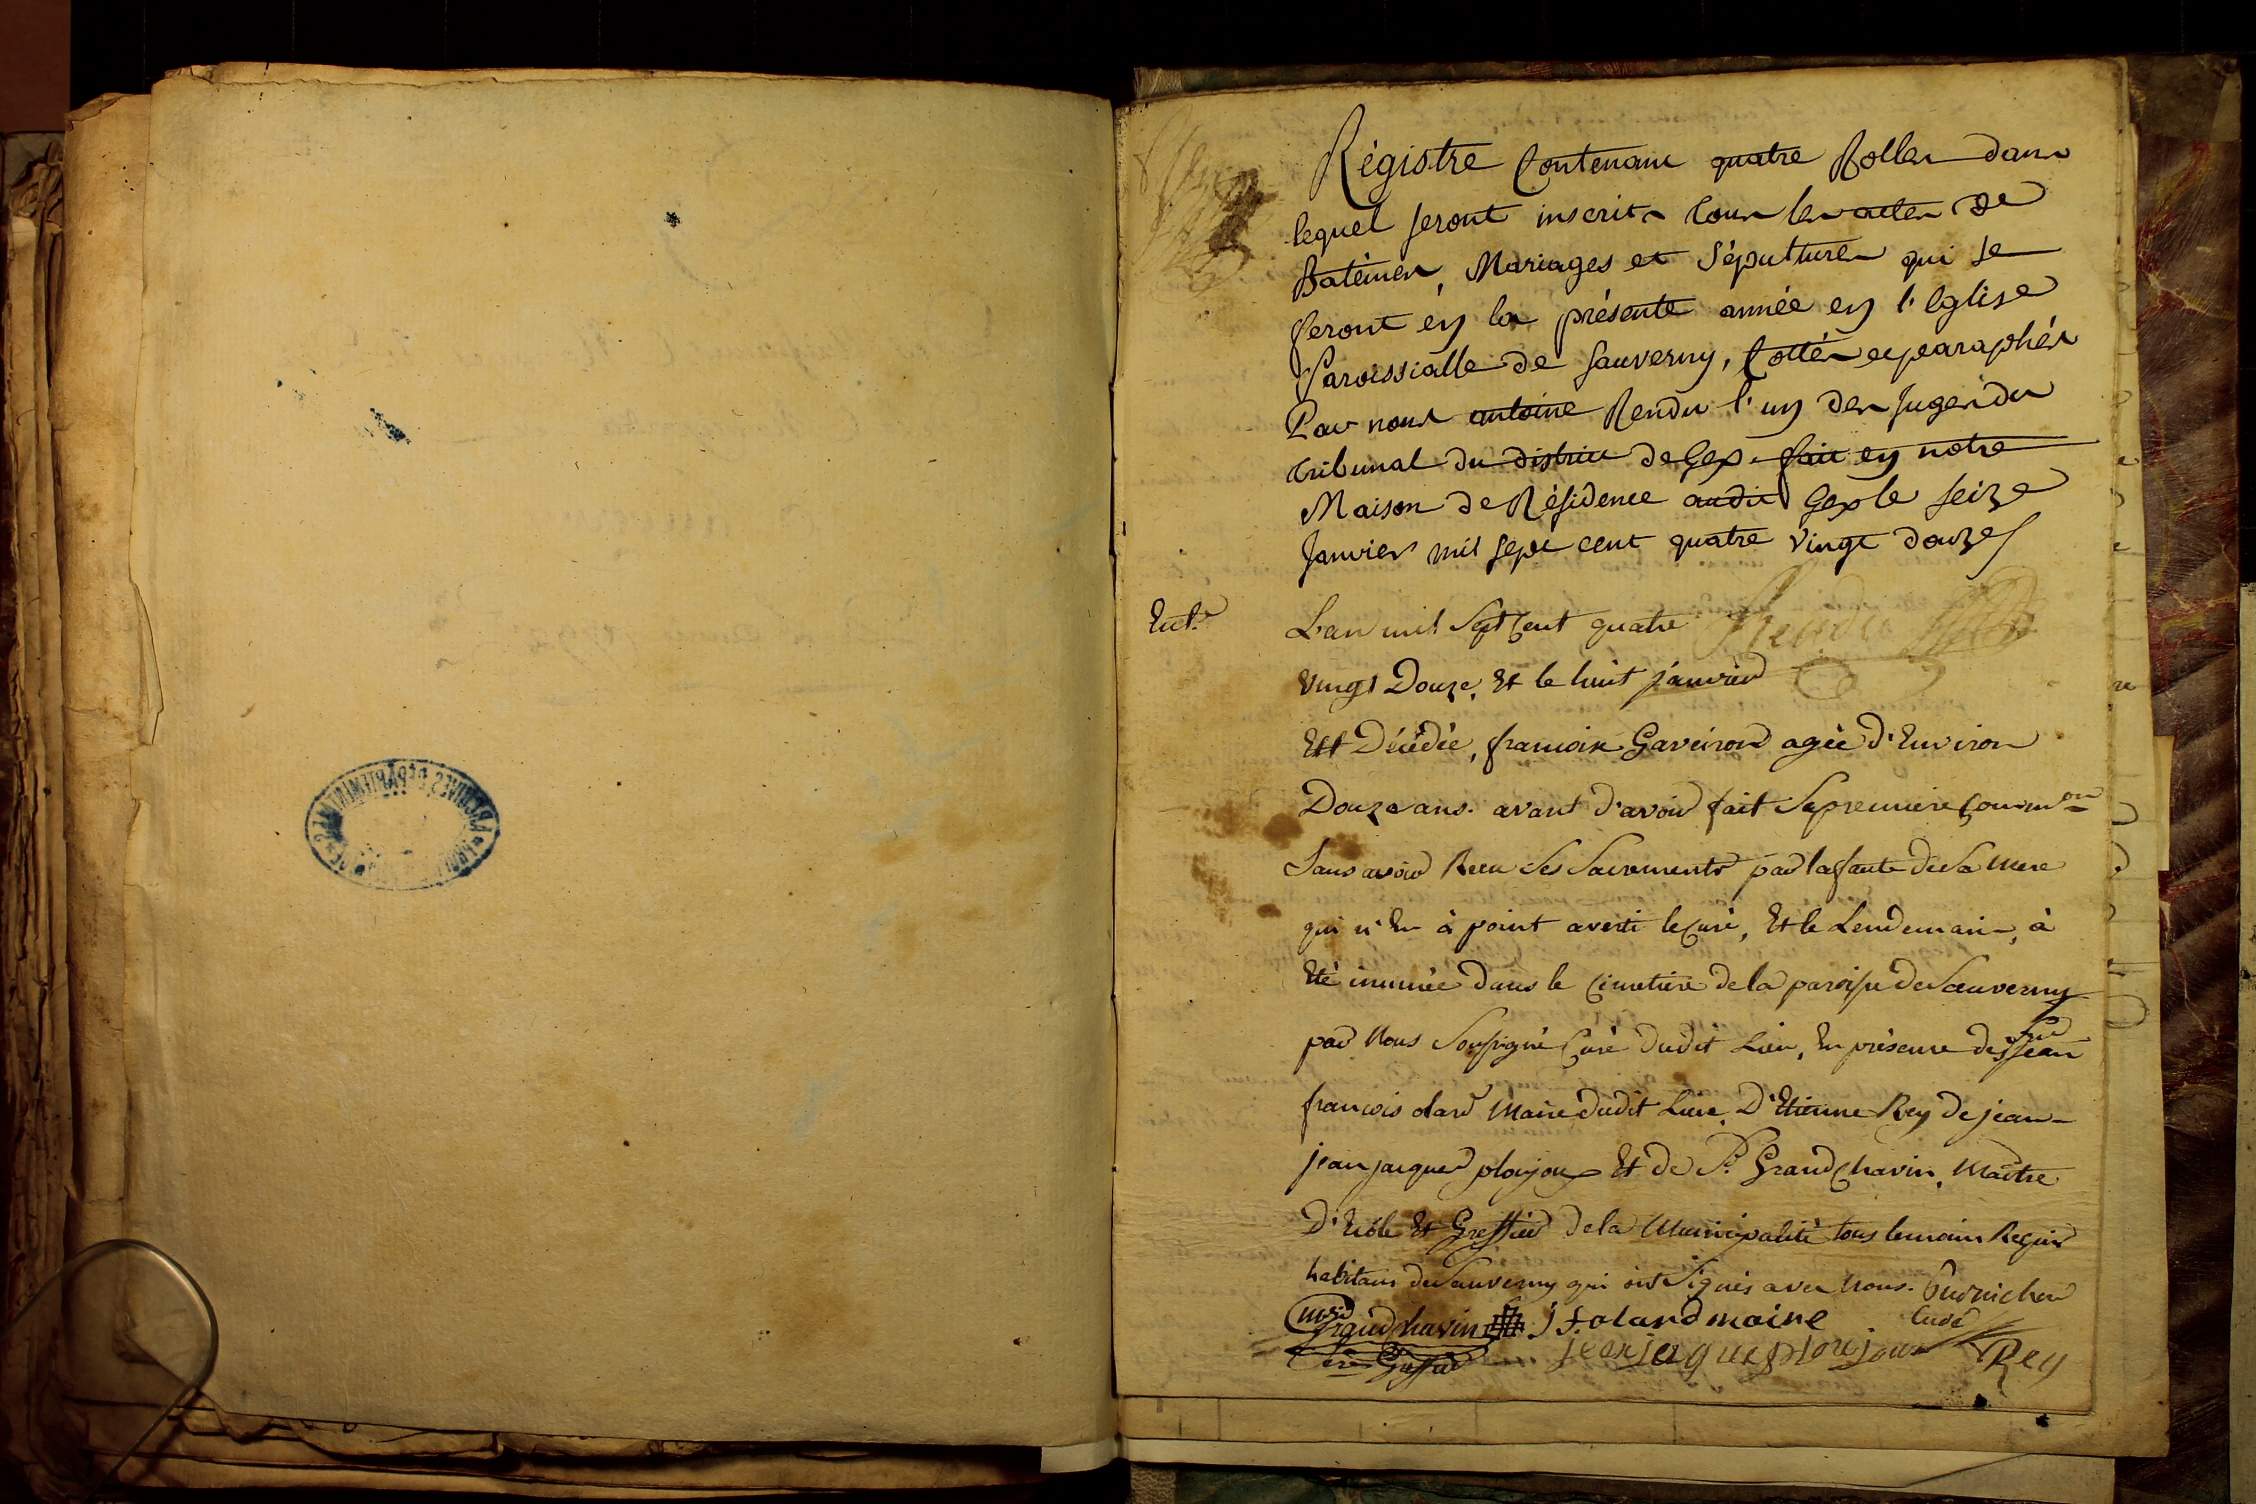 Régistre Contenant quatre Rolles dans
lequel seront inscrits tous les actes de
Batêmes, Mariages et Sépultures qui se
feront en la présente année en l'Eglise
Paroissialle de Sauverny, Cottés et paraphés
Par nous antoine Rendu l'un des Juges du
tribunal du district de Gex. fait en notre
Maison de Résidence audit Gex le seize
Janvier mil sept cent quatre vingt douze
Rendu
L'an mil Sept Cent quatre
vingt Douze, Et le huit janvier
Est Décédée, francoise Gaveiron agée d'Environ
Douze ans. avant d'avoir fait Sa premiere Comm.on
Sans avoir Recu Ses Sacrements par la faute de Sa Mere
qui n'En à point averti le Curé, Et le Lendemain, à
Eté inumée dans le Cimetiere de la paroisse de Sauverny
par Nous Soussigné Curé dudit Lieu, En présence des Jean
francois olard Maire dudit Lieu, D'Etienne Rey de jean
jean jaques ploujoux Et de Sr. Grandchavin, Maître
D'Ecole Et Greffier de la Municipalité tous temoins Requis
habitans de Sauverny qui ont Signés avec Nous.
Grandchavin J f olard maire Curé
Greffier jean jaques ploujoux Rey
ARCHIVES DÉPARTEMENTALES